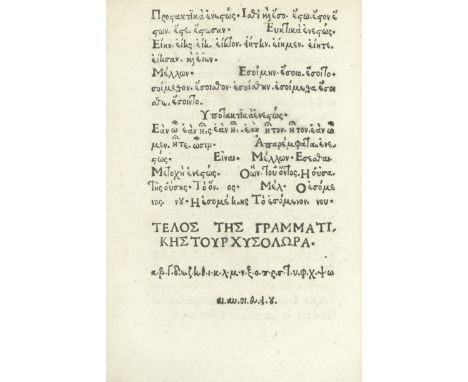 Προςακτικὰ ἐνεςῶς· Ἴσθι ἢ ἔσο· ἔςω· ἔςον ἔ
ςων· ἔςε· ἔςωσαν· Εὐκτικὰ ἐνεςῶς·
Εἴην· εἴης· εἴη· εἴητον· εἰήτην· εἴημεν· εἴητε·
εἴησαν· ἢ εἶεν·
Μέλλων· Ἐσοίμην· ἔσοιο· ἔσοιτο·
σοίμεθον· ἔσοισθον· ἐσοίσθην· ἐσοίμεθα· ἔσοι
σθε· ἔσοιντο·
Ὑποτακτικὰ ἐνεςῶς·
Ἐὰν ὦ ἐὰν ἦς ἐὰν ἦ· ἐὰν ἦτον ἦτον· ἐὰν ὦ
μεν· ἦτε· ὦσι· Ἀπαρέμφατα· ἐνε
ςῶς· Εἶναι· Μέλλων· Ἔσεσθαι·
Μετοχὴ ἐνεςῶς· Ὁ ὢν· τοῦ ὄντος· Ἡ οὖσα
τῆς οὔσης· Τὸ ὂν· ος· Μέλ· Ὁ ἐσόμε
νος· νου· Ἡ ἐσομένη· κ· ης Τὸ ἐσόμενον· νου·
ΤΕΛΟΣ ΤΗΣ ΓΡΑΜΜΑΤΙ,
ΚΗΣ ΤΟΥ Ρ ΧΥΣΟΛΩΡΑ·
α·β·γ·δ·ε·ζ·η·θ·ι·κ·λ·μ·ν·ξ·ο·π·ρ·σ·τ·υ·φ·χ·ψω